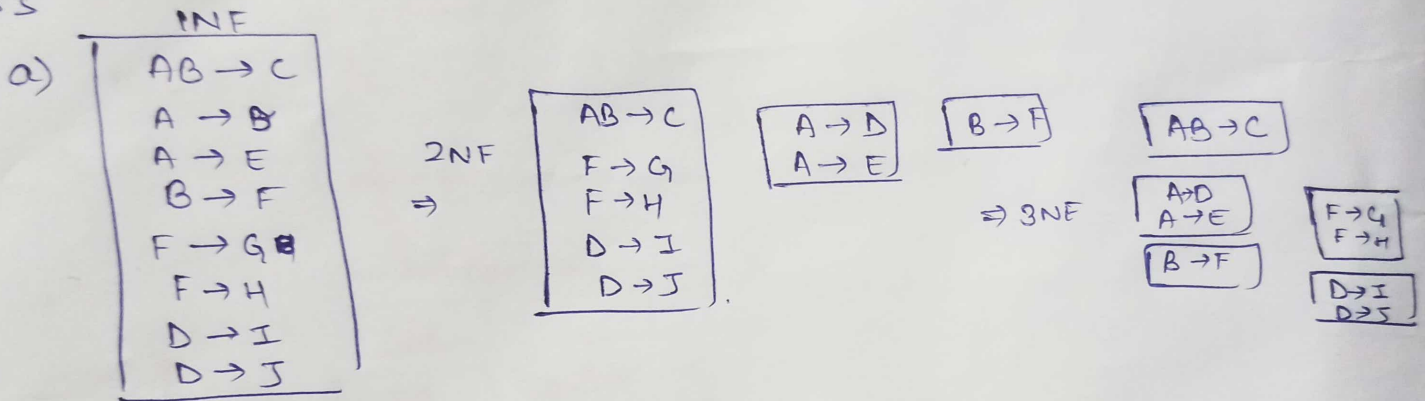 1NF
a)
AB → C
A → D
A → E
B → F
F → G
F → H
D → I
D → J
2NF
⇒
AB → C
F → G
F → H
D → I
D → J
A → D
A → E
B → F
⇒ 3NF
AB → C
A→D
A → E
B → F
F → G
F → H
D → I
D → J